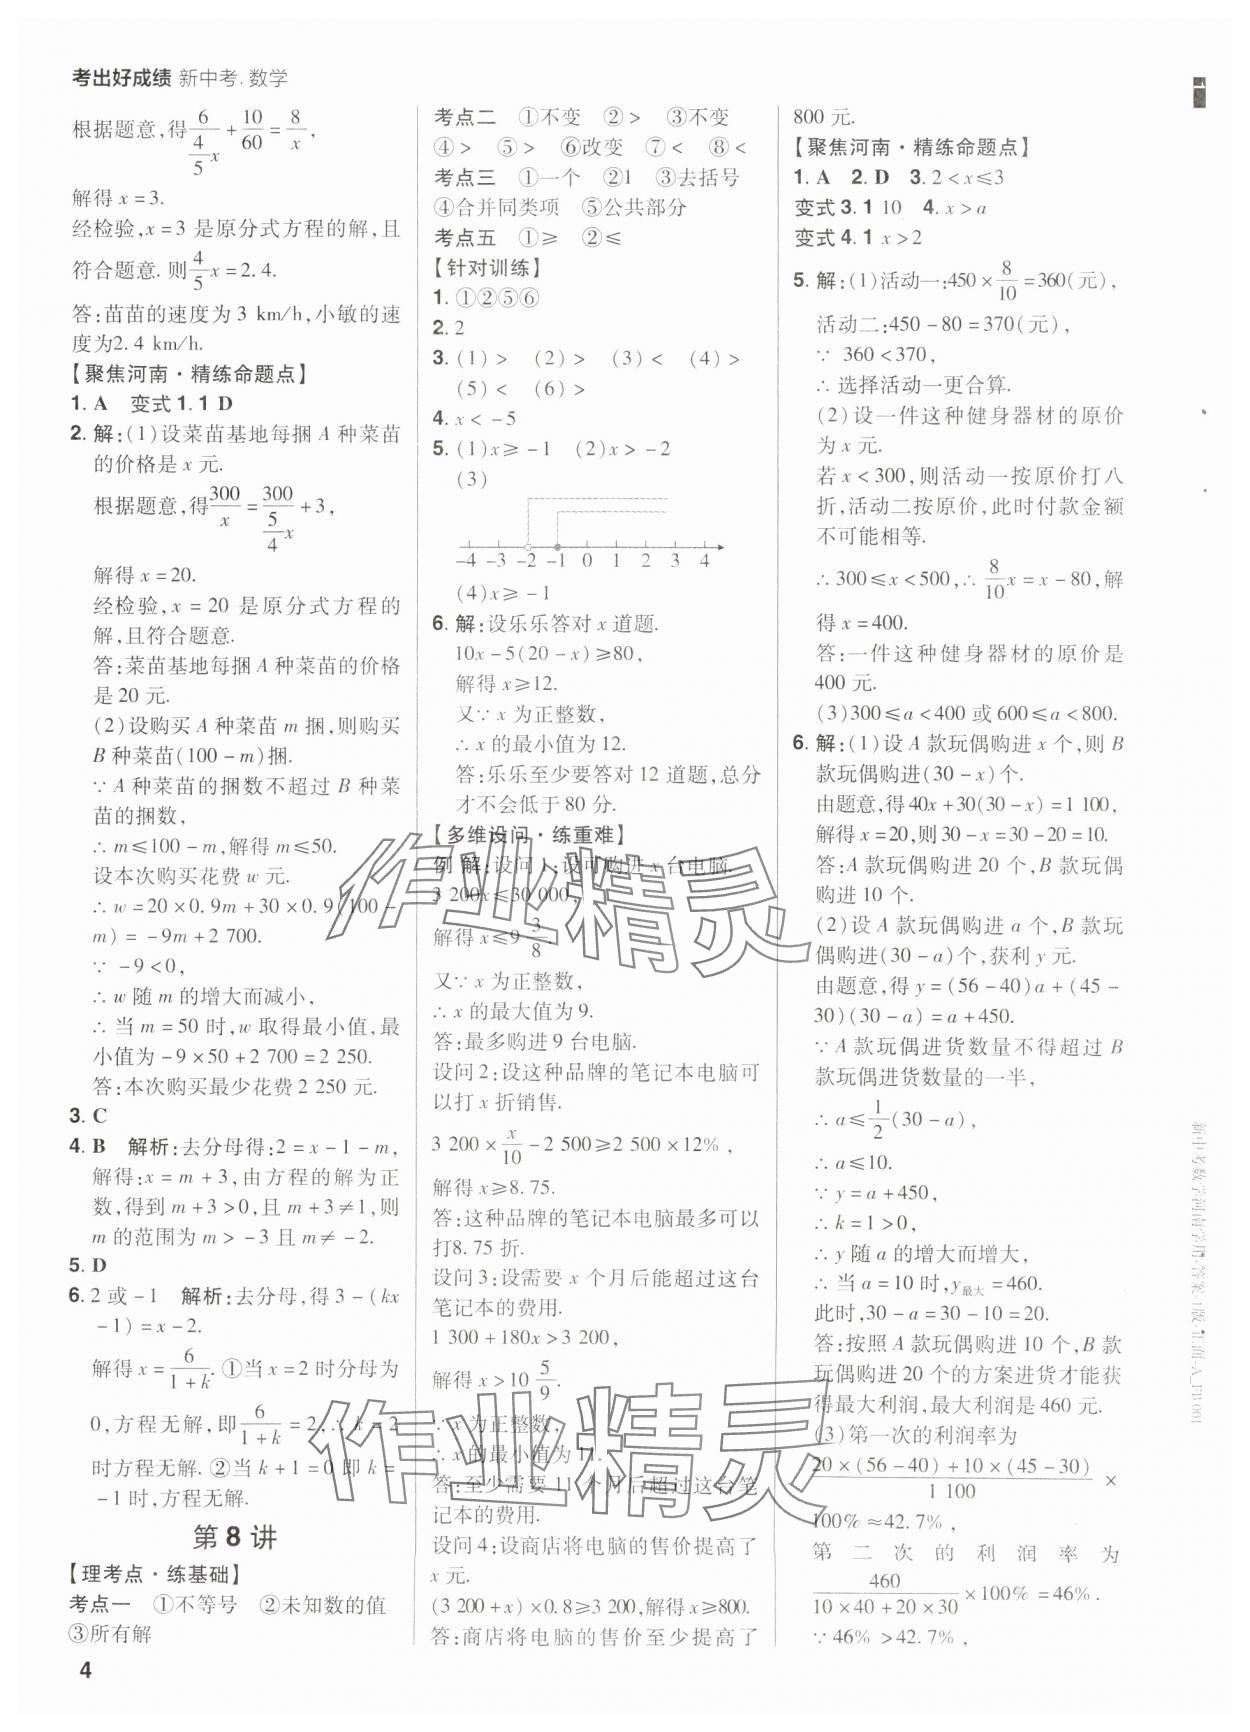 考出好成绩 新中考.数学
根据题意,得6/(4/5 x)+10/60=8/x,
解得x=3.
经检验,x=3是原分式方程的解,且
符合题意.则4/5x=2.4.
答:苗苗的速度为3 km/h,小敏的速
度为2.4 km/h.
【聚焦河南·精练命题点】
1. A 变式1.1 D
2. 解:(1)设菜苗基地每捆A种菜苗
的价格是x元.
根据题意,得300/x=300/(5/4 x)+3,
解得x=20.
经检验,x=20是原分式方程的
解,且符合题意.
答:菜苗基地每捆A种菜苗的价格
是20元.
(2)设购买A种菜苗m捆,则购买
B种菜苗(100-m)捆.
∵A种菜苗的捆数不超过B种菜
苗的捆数,
∴m≤100-m,解得m≤50.
设本次购买花费w元.
∴w=20×0.9m+30×0.9(100-
m)=-9m+2 700.
∵-9<0,
∴w随m的增大而减小,
∴当m=50时,w取得最小值,最
小值为-9×50+2 700=2 250.
答:本次购买最少花费2 250元.
3. C
4. B 解析:去分母得:2=x-1-m,
解得:x=m+3,由方程的解为正
数,得到m+3>0,且m+3≠1,则
m的范围为m>-3且m≠-2.
5. D
6. 2或-1 解析:去分母,得3-(kx
-1)=x-2.
解得x=6/(1+k).①当x=2时分母为
0,方程无解,即6/(1+k)=2,∴k=2
时方程无解.②当k+1=0即k=
-1时,方程无解.
第8讲
【理考点·练基础】
考点一 ①不等号 ②未知数的值
③所有解
4
考点二 ①不变 ②> ③不变
④> ⑤> ⑥改变 ⑦< ⑧<
考点三 ①一个 ②1 ③去括号
④合并同类项 ⑤公共部分
考点五 ①≥ ②≤
【针对训练】
1. ①②⑤⑥
2. 2
3. (1)> (2)> (3)< (4)>
(5)< (6)>
4. x<-5
5. (1)x≥-1 (2)x>-2
(3)
-4 -3 -2 -1 0 1 2 3 4
(4)x≥-1
6. 解:设乐乐答对x道题.
10x-5(20-x)≥80,
解得x≥12.
又∵x为正整数,
∴x的最小值为12.
答:乐乐至少要答对12道题,总分
才不会低于80分.
【多维设问·练重难】
例 解:设问1:设可购进x台电脑.
3 200x≤30 000,
解得x≤9 3/8.
又∵x为正整数,
∴x的最大值为9.
答:最多购进9台电脑.
设问2:设这种品牌的笔记本电脑可
以打x折销售.
3 200×x/10-2 500≥2 500×12%,
解得x≥8.75.
答:这种品牌的笔记本电脑最多可以
打8.75折.
设问3:设需要x个月后能超过这台
笔记本的费用.
1 300+180x>3 200,
解得x>10 5/9.
∵x为正整数,
∴x的最小值为11.
答:至少需要11个月后超过这台笔
记本的费用.
设问4:设商店将电脑的售价提高了
x元.
(3 200+x)×0.8≥3 200,解得x≥800.
答:商店将电脑的售价至少提高了
800元.
【聚焦河南·精练命题点】
1. A 2. D 3. 2<x≤3
变式3.1 10 4. x>a
变式4.1 x>2
5. 解:(1)活动一:450×8/10=360(元),
活动二:450-80=370(元),
∵360<370,
∴选择活动一更合算.
(2)设一件这种健身器材的原价
为x元.
若x<300,则活动一按原价打八
折,活动二按原价,此时付款金额
不可能相等.
∴300≤x<500,∴8/10x=x-80,解
得x=400.
答:一件这种健身器材的原价是
400元.
(3)300≤a<400或600≤a<800.
6. 解:(1)设A款玩偶购进x个,则B
款玩偶购进(30-x)个.
由题意,得40x+30(30-x)=1 100,
解得x=20,则30-x=30-20=10.
答:A款玩偶购进20个,B款玩偶
购进10个.
(2)设A款玩偶购进a个,B款玩
偶购进(30-a)个,获利y元.
由题意,得y=(56-40)a+(45-
30)(30-a)=a+450.
∵A款玩偶进货数量不得超过B
款玩偶进货数量的一半,
∴a≤1/2(30-a),
∴a≤10.
∵y=a+450,
∴k=1>0,
∴y随a的增大而增大,
∴当a=10时,y最大=460.
此时,30-a=30-10=20.
答:按照A款玩偶购进10个,B款
玩偶购进20个的方案进货才能获
得最大利润,最大利润是460元.
(3)第一次的利润率为
(20×(56-40)+10×(45-30))/1 100×
100%≈42.7%,
第二次的利润率为
460/(10×40+20×30)×100%=46%.
∵46%>42.7%,
作业精灵
作业精灵